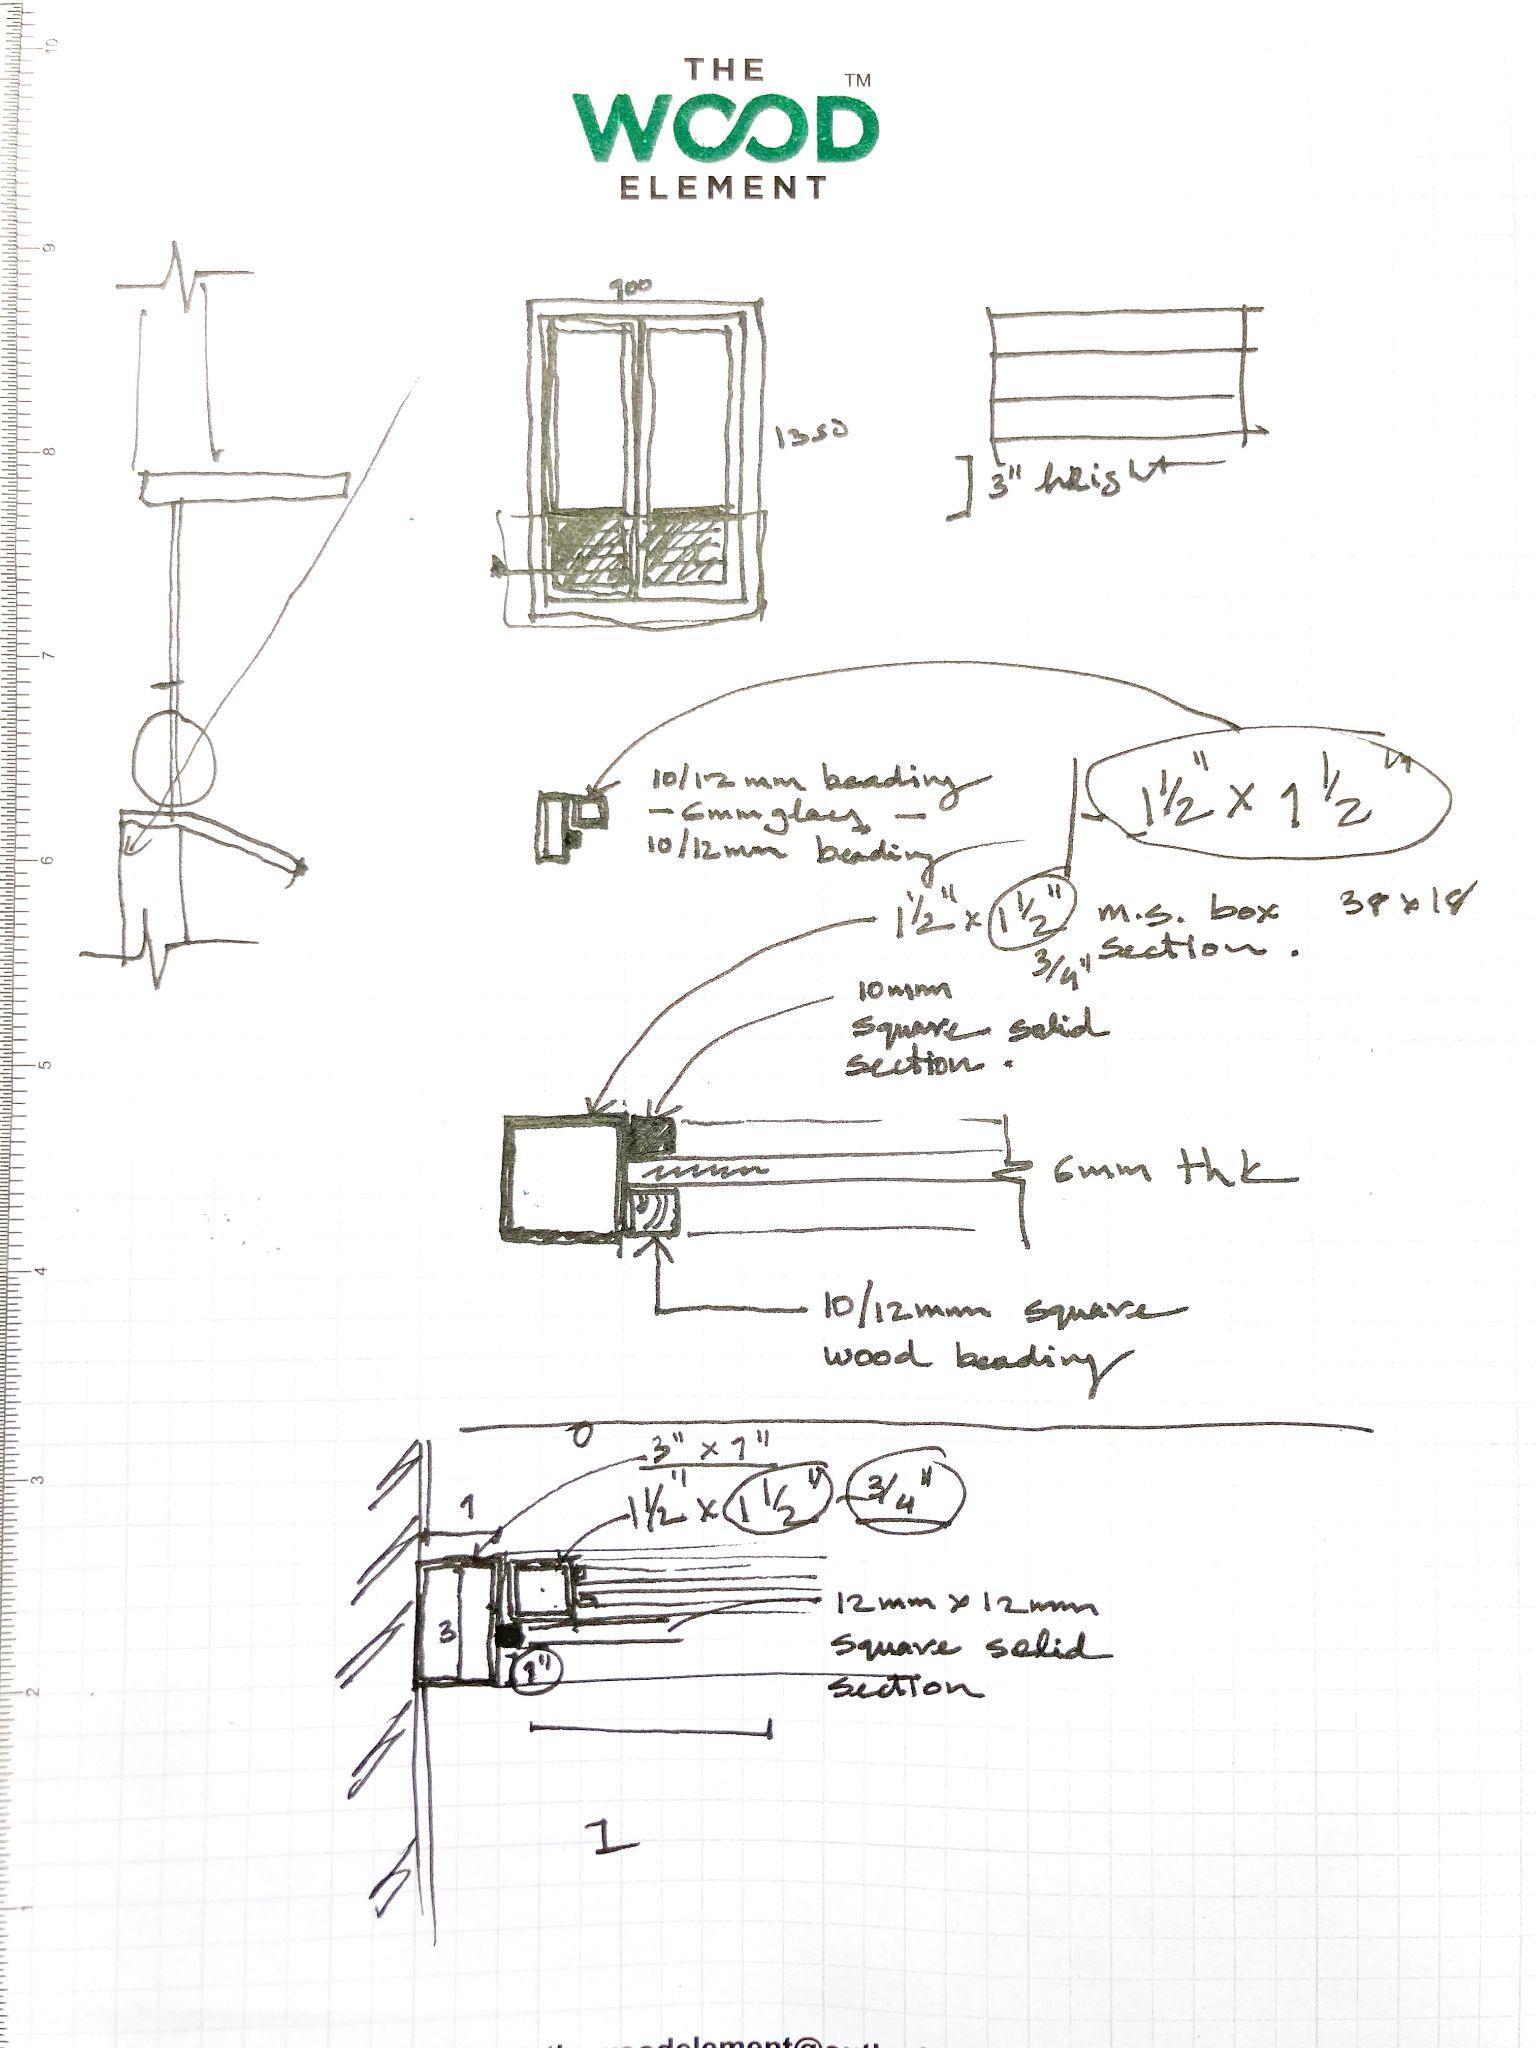 THE
WOOD
TM
ELEMENT
10
9
8
7
6
5
4
3
2
1
900
1350
3" height
10/12 mm beading
- 6mm glass -
10/12mm beading
1½" x 1½"
1½" x 1½" m.s. box 38 x 18
3/4" section.
10mm
square solid
section.
6mm thk
10/12mm square
wood beading
3" x 1"
1½" x 1½" 3/4"
1
3
12mm x 12mm
square solid
section
1"
1